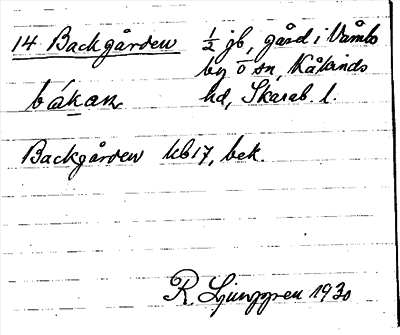 14 Backgården ½ jb, gård i Våmb
by o sn, Kålands
bákan hd, Skarab. l.
Backgården kb17, bek.
R. Ljunggren 1930